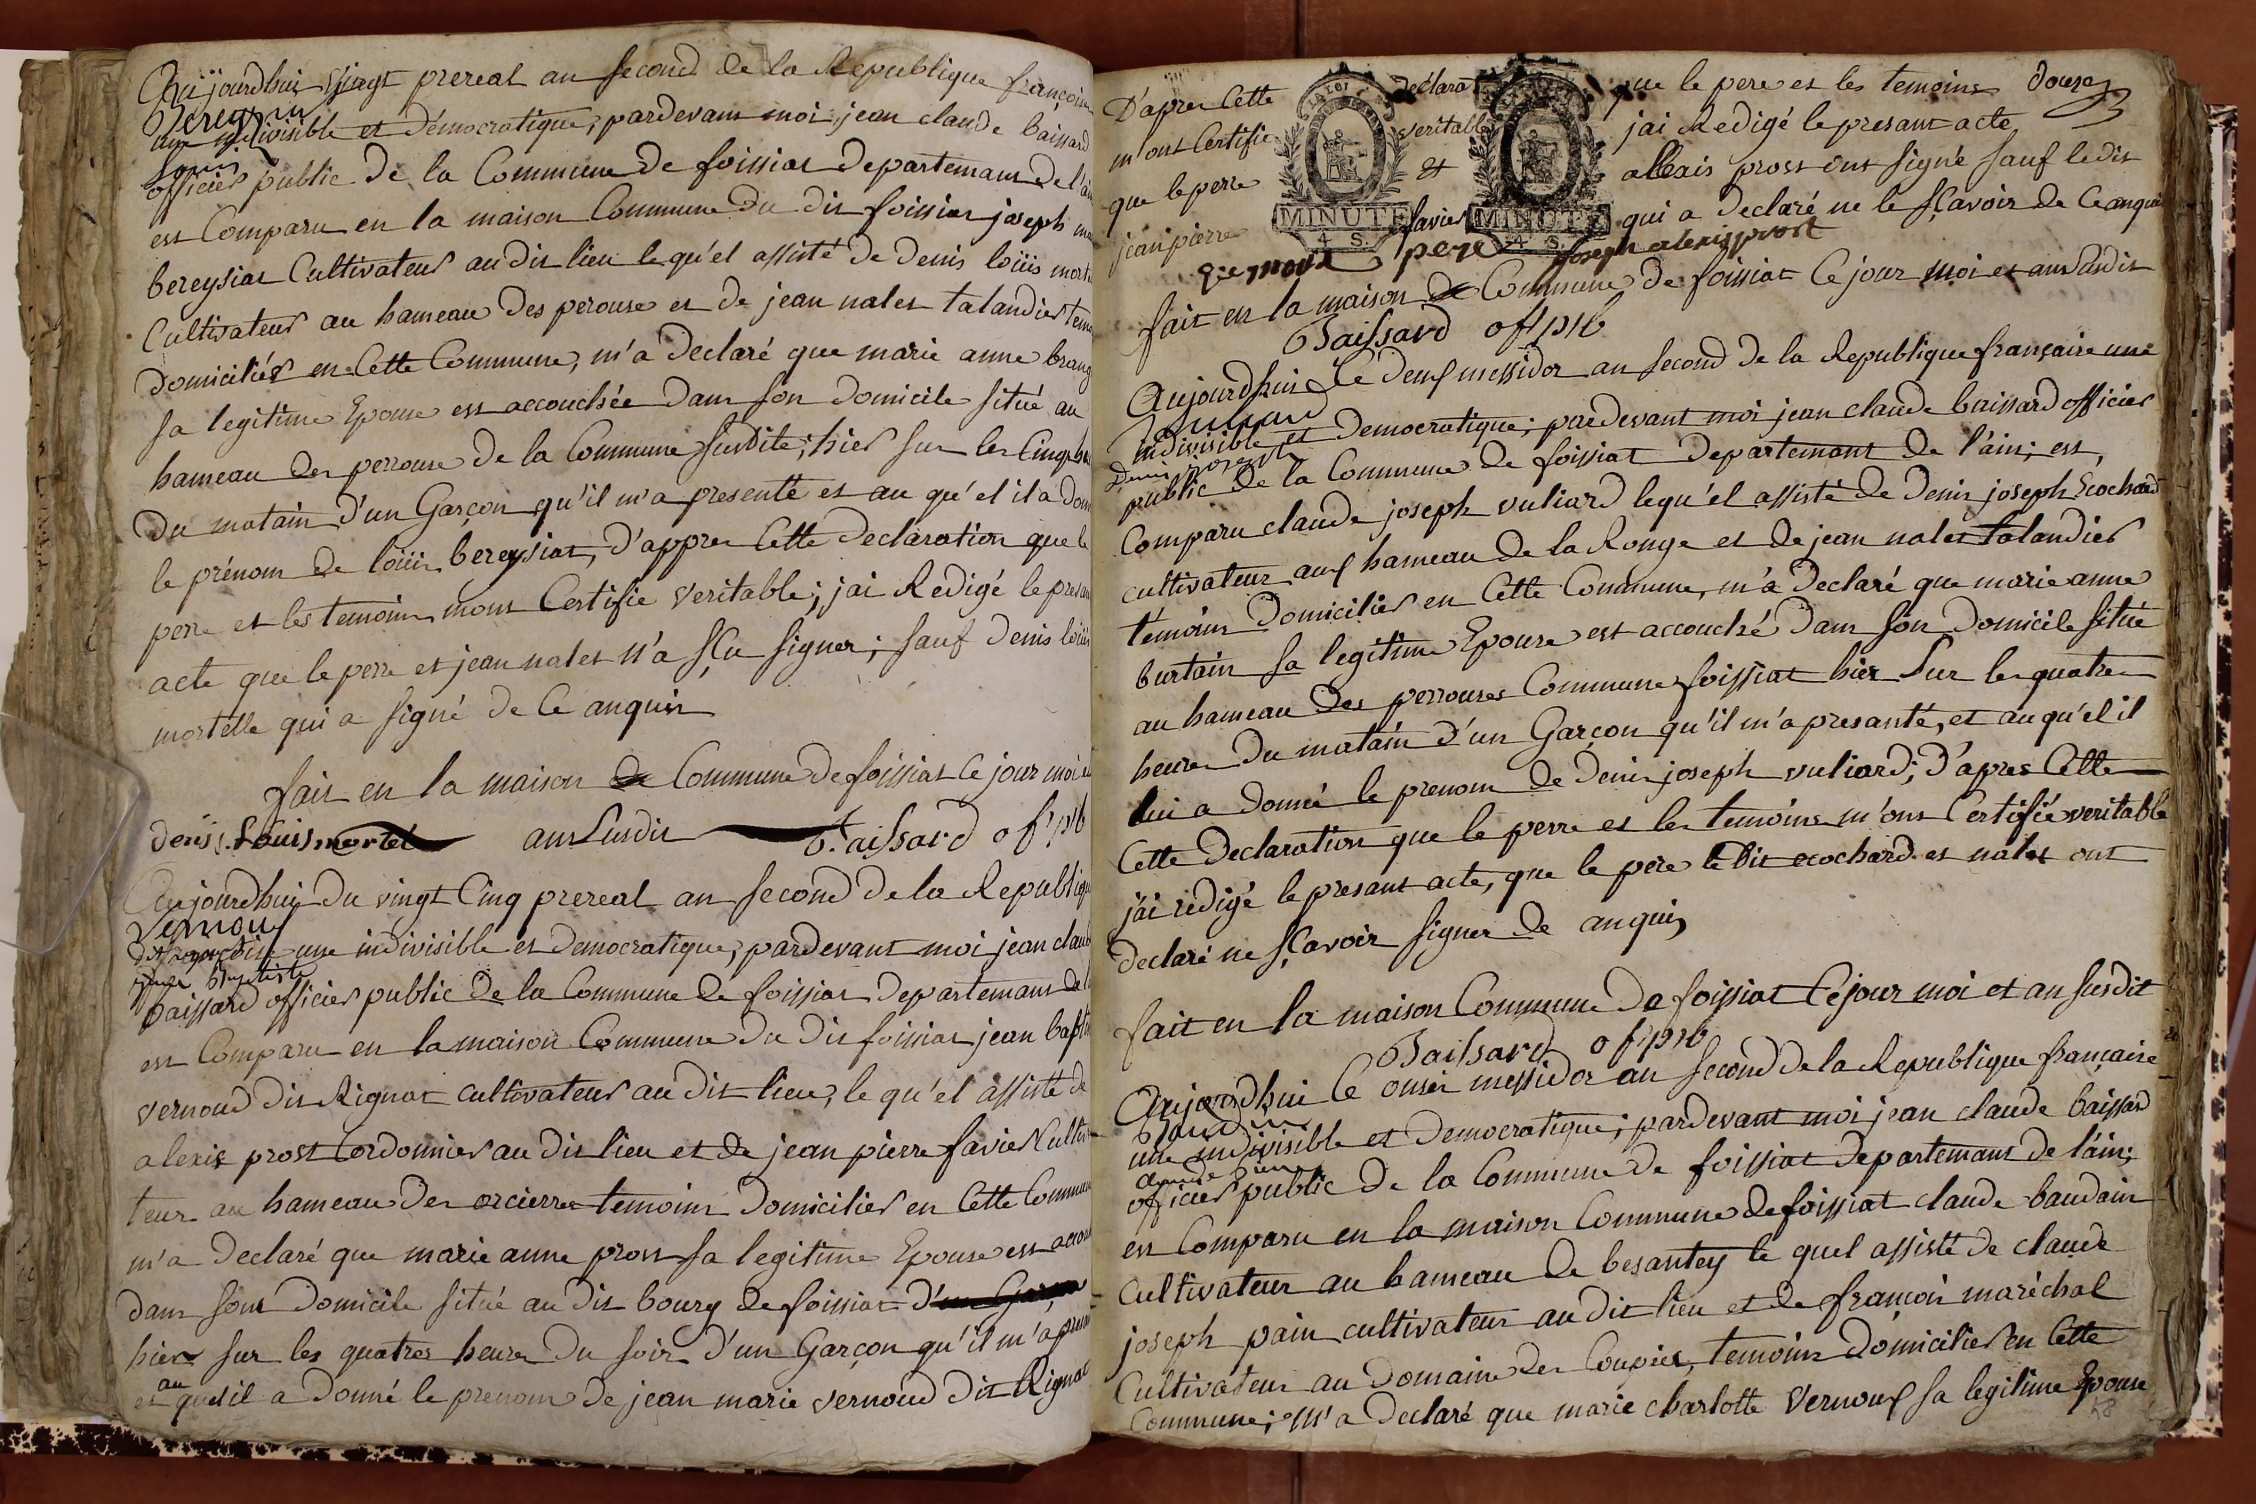 Aujourdhui vingt prereal an second de la Republique françoise
Bereysia
une indivisible et Démocratique; pardevant moi jean claude baissard
Louis
officier public de la Commune de foissiat departemant de l'ain
est Comparu en la maison Commune du dit foissiat joseph
bereysiat Cultivateur audit lieu lequ'el assisté de Denis loüis mortel
Cultivateur au hameau des perouse et de jean nalet talandier temoins
domiciliés en Cette Commune, m'a Declaré que marie anne
sa legitime Epouse est accouchée dans son domicile situé au
hameau des perrouse de la Commune Susdite; hier sur les Cinq heures
du matain d'un Garçon qu'il m'a presenté et au qu'el il a donné
le prénom de loüis bereysiat, D'appres Cette declaration que le
perre et les temoins mont Certifie veritable; jai Redigé le presant
acte que le perre et jean nalet n'a sçu signer; sauf denis loüis
mortelle qui a signé de Ce anquis
fait en la maison de Commune de foissiat Ce jour moi et
denis Louis mortel ans Susdit Baissard of. pb
Aujourdhui du vingt Cinq prereal an second de la Republique
Vernouf
françoise une indivisible et democratique; pardevant moi jean claude
jean baptiste
baissard officier public de la Commune de foissiat departemant de
est Comparu en la maison Commune du dit foissiat jean baptiste
vernoud dit Rignat cultivateur au dit lieu, le qu'el assisté de
alexis prost Cordonnier au dit lieu et de jean pierre favier Cultiva
teur au hameau des orcierre temoins domiciliés en Cette Commune
m'a declaré que marie anne prost sa legitime Epouse est accou
dans sont domicile situé au dit bourg de foissiat d'un Garçon
hier sur les quatres heures du soir d'un Garçon qu'il m'a presenté
au
et quel il a donné le prenom de jean marie vernoud dit Rignat
D'apres Cette declaration que le pere et les temoins
m'ont Certifie veritable jai Redigé le presant acte
que le perre et allexis prost ont signé sauf ledit
jean pierre favier qui a declaré ne le sçavoir de Ce anquis
MINUTE
4 S.
MINUTE
4 S.
pere joseph alexis prost
fait en la maison de Commune de foissiat Ce jour moi et ans Susdit
Baissard off pb
Aujourdhui le deuf messidor an second de la Republique française une
Vuliard
indivisible et Democratique; pardevant moi jean claude baissard officier
Denis joseph
public de la Commune de foissiat departemant de l'ain; est,
Comparu claude joseph vuliard lequ'el assisté de denis joseph Ecochard
cultivateur auf hameau de la Ronge et de jean nalet talandier
témoins domiciliés en Cette Commune, m'a declaré que marie anne
burtain sa legitime Epouse est accouché dans son domicile situé
au hameau des perrouses Commune foissiat hier Sur les quatre
heures du matain d'un Garçon qu'il m'a presanté, et auqu'el il
lui a donné le prenom de denis joseph vuliard; D'apres Cette
Cette declaration que le perre et les temoins m'ont Certifiée veritable
j'ai redigé le presant acte, que le pere le dit ecochard et nalet ont
declaré ne sçavoir signer de anquis
fait en la maison Commune de foissiat Ce jour moi et an susdit
Baissard of pb
Aujourdhui le onsie messidor an second de la Republique française
Baudin
une indivisible et Democratique; pardevant moi jean claude baissard
officier public de la Commune de foissiat departemant de l'ain;
est Comparu en la maison Commune de foissiat claude baudain
Cultivateur au hameau de besantey le quel assisté de claude
joseph pain cultivateur au dit lieu et de françois maréchal
Cultivateur au domaine des Coupies, temoins domiciliés en Cette
Commune; m'a Declaré que marie charlotte Vernouf sa legitime Epouse